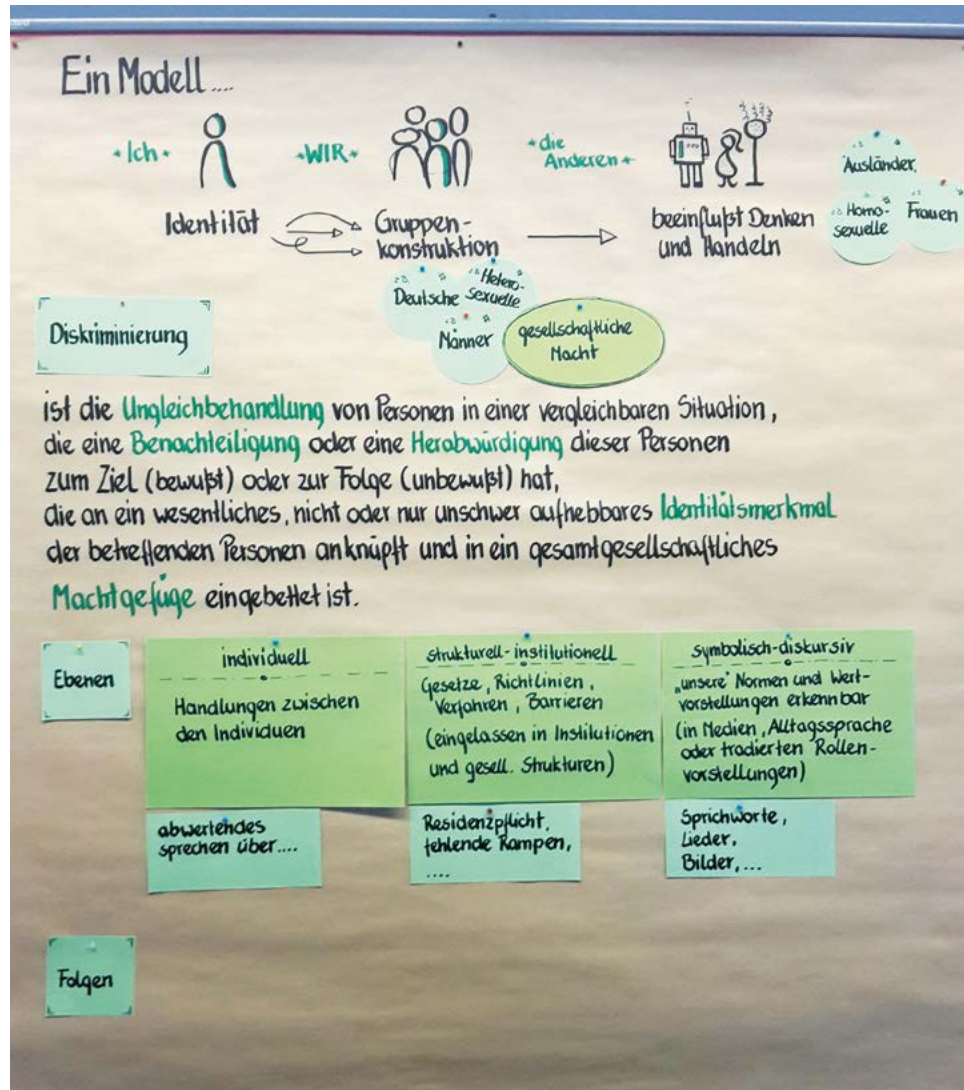 Ein Modell....
*Ich*
*WIR*
*die
Anderen*
Identität
Gruppen-
konstruktion
beeinflußt Denken
und Handeln
Ausländer,
Homo-
sexuelle
Frauen
Deutsche
Hetero-
sexuelle
Männer
gesellschaftliche
Macht
Diskriminierung
ist die Ungleichbehandlung von Personen in einer vergleichbaren Situation,
die eine Benachteiligung oder eine Herabwürdigung dieser Personen
zum Ziel (bewußt) oder zur Folge (unbewußt) hat,
die an ein wesentliches, nicht oder nur unschwer aufhebbares Identitätsmerkmal
der betreffenden Personen anknüpft und in ein gesamtgesellschaftliches
Machtgefüge eingebettet ist.
Ebenen
individuell
Handlungen zwischen
den Individuen
strukturell-institutionell
Gesetze, Richtlinien,
Verfahren, Barrieren
(eingelassen in Institutionen
und gesell. Strukturen)
symbolisch-diskursiv
„unsere" Normen und Wert-
vorstellungen erkennbar
(in Medien, Alltagssprache
oder tradierten Rollen-
vorstellungen)
abwertendes
sprechen über....
Residenzpflicht,
fehlende Rampen,
....
Sprichworte,
Lieder,
Bilder,...
Folgen